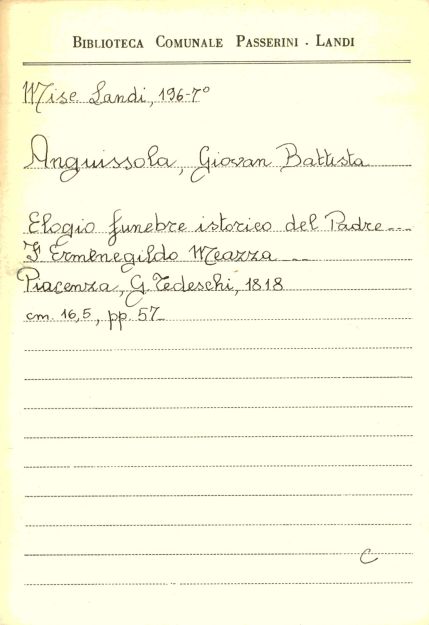 BIBLIOTECA COMUNALE PASSERINI - LANDI
Mise Landi, 196-7°
Anguissola, Giovan Battista
Elogio funebre istorico del Padre ...
F. Ermenegildo Meazza ...
Piacenza, G. Tedeschi, 1818
cm. 16,5, pp. 57
C